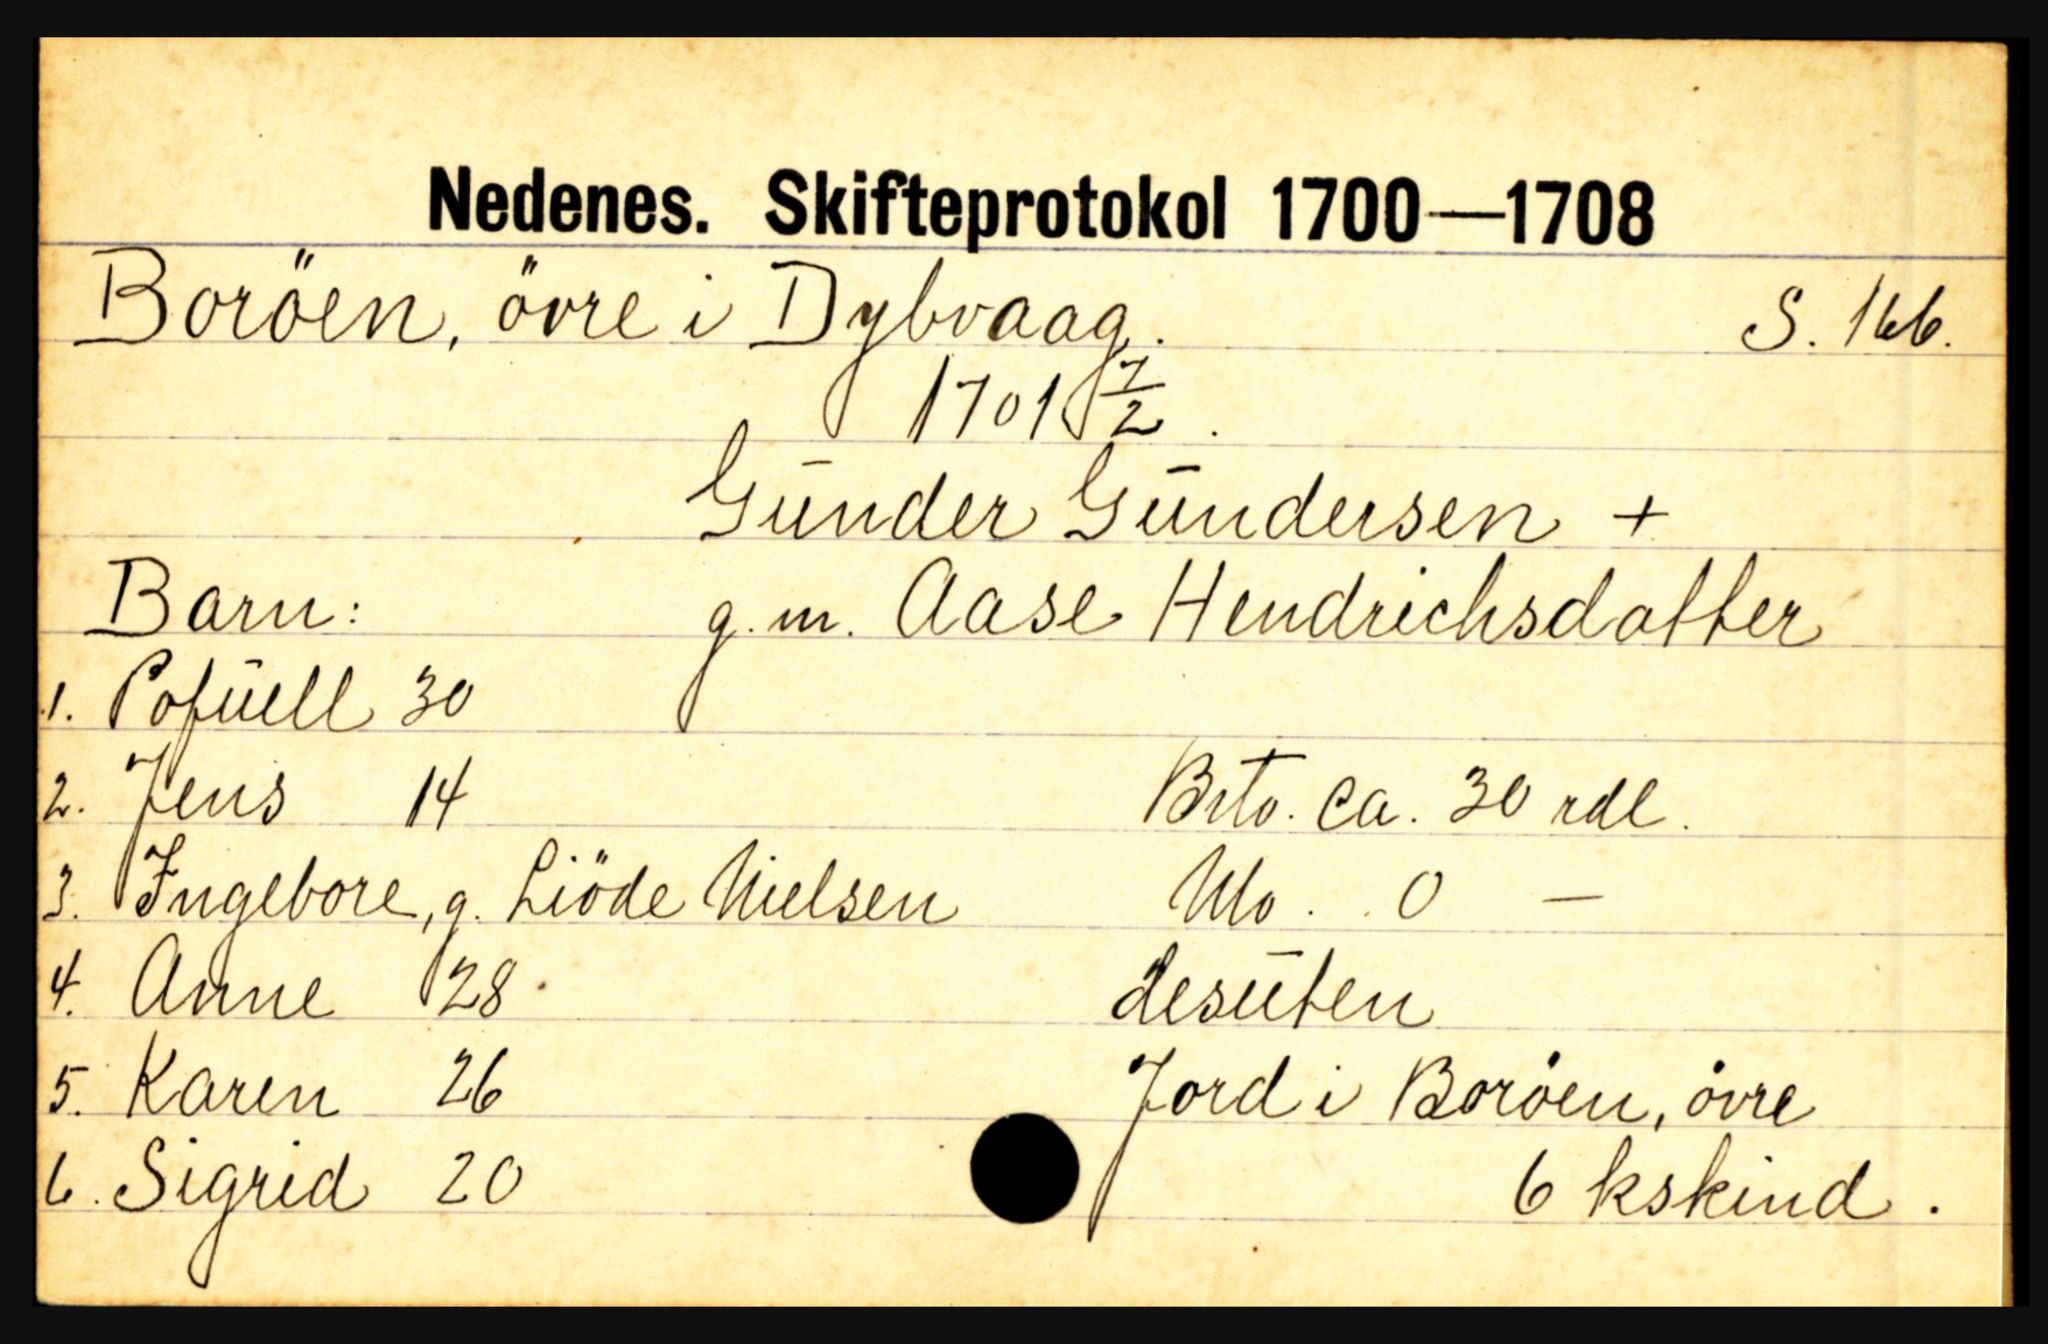 Nedenes. Skifteprotokol 1700—1708
Boröen, övre i Dybvaag. S. 166.
1701 7/2.
Gūnder Gūndersen +
Barn: g.m. Aase Hendrichsdatter
1. Pofūell 30
2. Jens 14 Brto. ca. 30 rdl.
3. Ingebore, g. Liöde Nielsen Nto. 0 —
4. Anne 28. desūten
5. Karen 26 Jord i Boröen, övre
6. Sigrid 20 6 kskind.